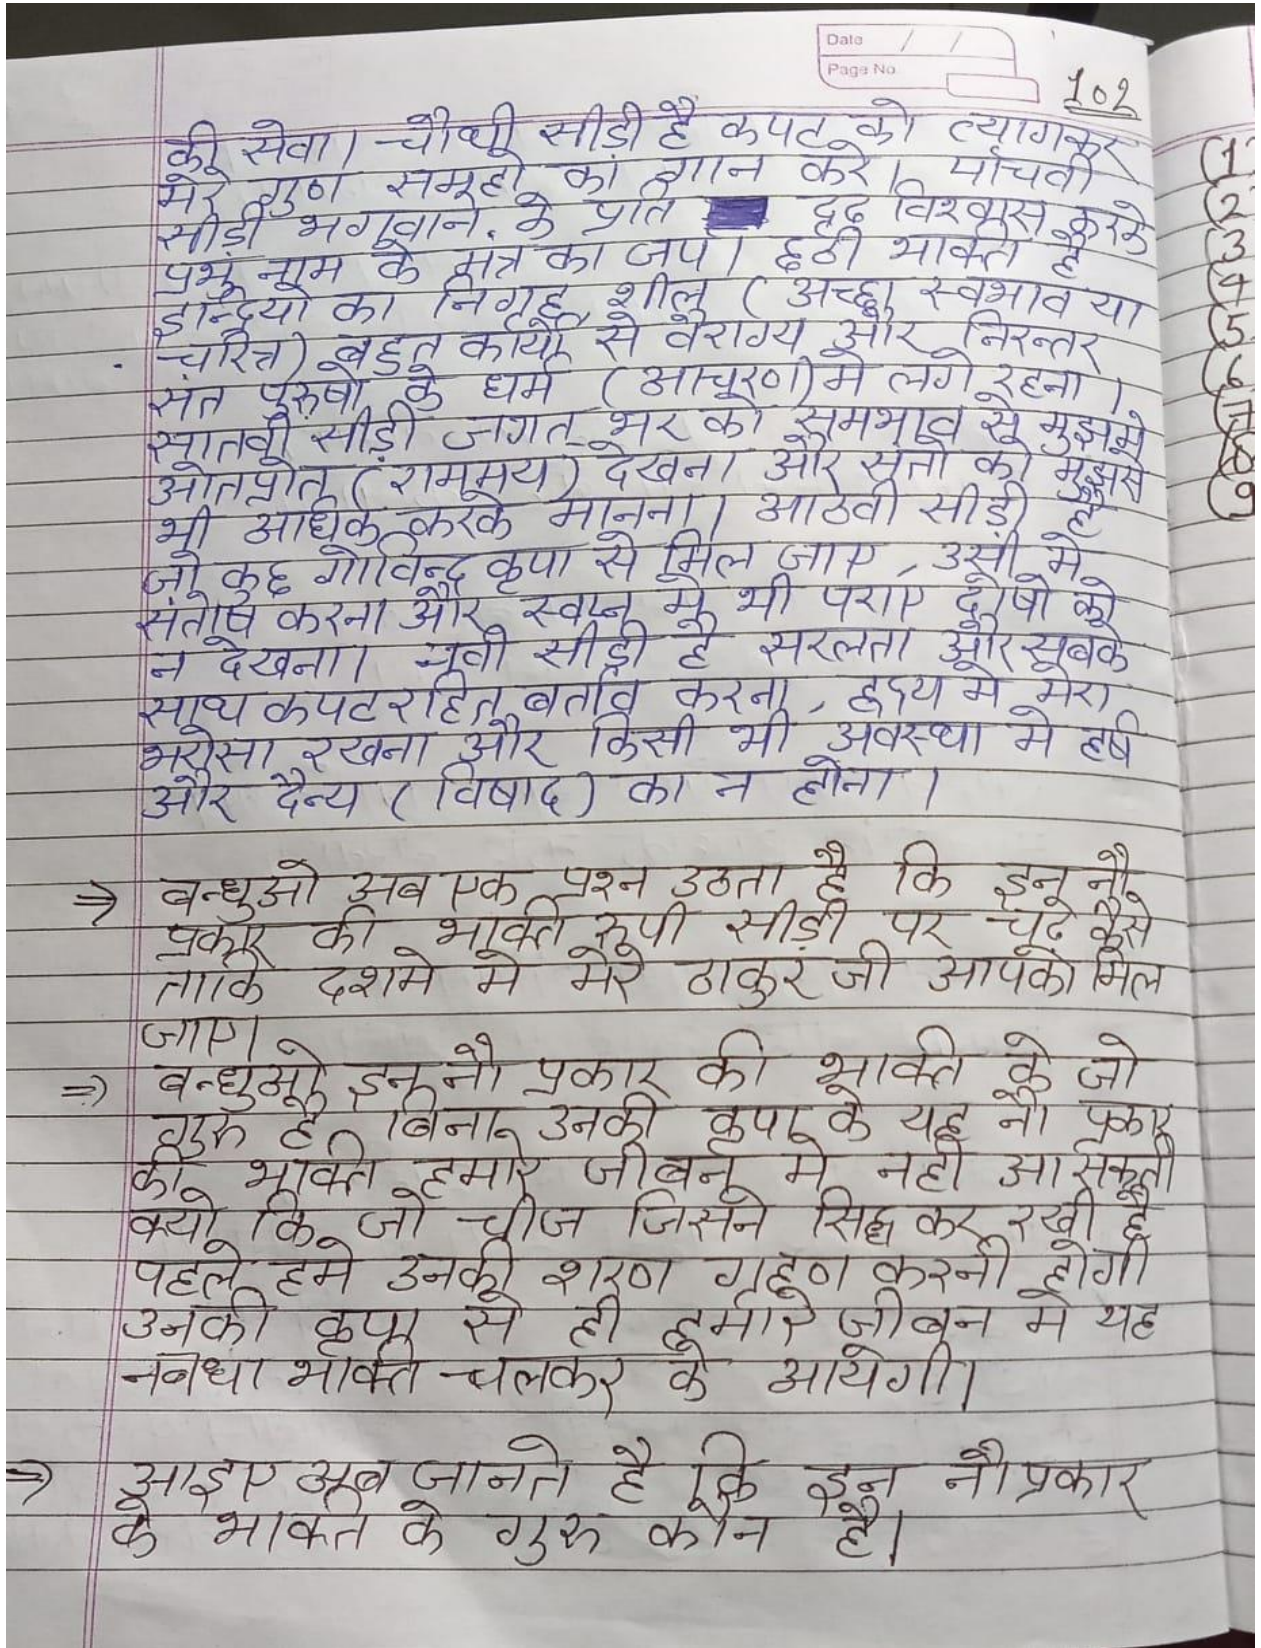 Date / /
Page No
102
की सेवा। चौथी सीडी है कपट को त्यागकर
मेरे गुण समूहो का गान करे। पाँचवी
सीडी भगवान के प्रति द्रढ विश्वास करके
प्रभु नाम के मंत्र का जप। छठी भक्ति है
इन्द्रियो का निग्रह, शील (अच्छा स्वभाव या
चरित्र) बहुत कार्यो से वैराग्य और निरन्तर
संत पुरुषो के धर्म (आचरण) मे लगे रहना।
सातवी सीड़ी जगत् भर को समभाव से मुझमे
ओतप्रोत (राममय) देखना और संतो को मुझसे
भी अधिक करके मानना। आठवी सीड़ी है
जो कुछ गोविन्द कृपा से मिल जाए, उसी मे
संतोष करना और स्वप्न मे भी पराए दोषो को
न देखना। नवी सीड़ी है सरलता और सबके
साथ कपटरहित बर्ताव करना, ह्रदय मे मेरा
भरोसा रखना और किसी भी अवस्था मे हर्ष
और दैन्य (विषाद) का न होना।
⇒ बन्धुओ अब एक प्रश्न उठता है कि इन नौ
प्रकार की भक्ति रुपी सीड़ी पर चढे कैसे
ताकि दशमे मे मेरे ठाकुर जी आपको मिल
जाए।
⇒ बन्धुओ इन नौ प्रकार की भक्ति के जो
गुरु है, बिना उनकी कृपा के यह नौ प्रकार
की भक्ति हमारे जीबन मे नही आ सकती
क्यो कि जो चीज जिसने सिद्ध कर रखी है
पहले हमे उनकी शरण ग्रहण करनी होगी
उनकी कृपा से ही हमारे जीबन मे यह
नबधा भक्ति चलकर के आयेगी।
⇒ आइए अब जानते है कि इन नौ प्रकार
के भक्ति के गुरु कौन है।
(1)
(2
(3
(4
(5
(6
(7
(8
(9